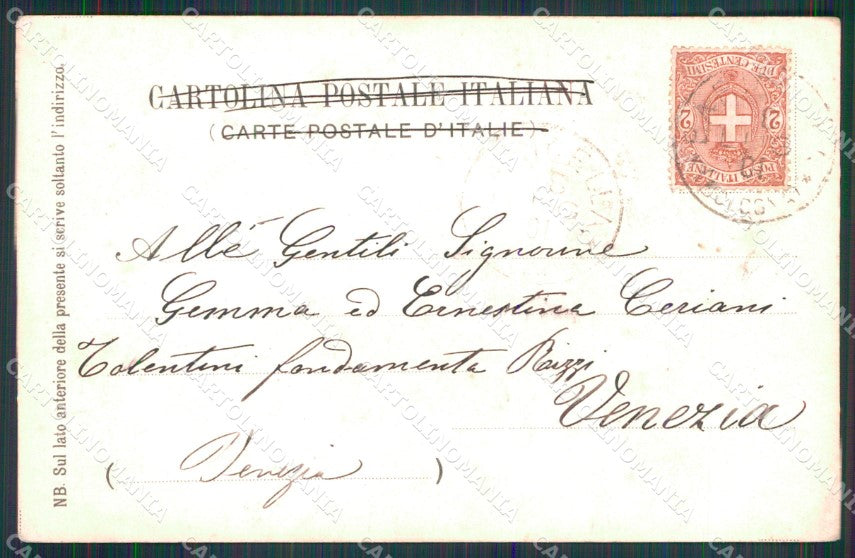 CARTOLINA POSTALE ITALIANA
(CARTE POSTALE D'ITALIE)
POSTE ITALIANE
2 2
DUE CENTESIMI
Alle Gentili Signorine
Gemma ed Ernestina Ceriani
Tolentini fondamenta Rizzi
Venezia
( Venezia )
NB. Sul lato anteriore della presente si scrive soltanto l'indirizzo.
CARTOLINOMANIA